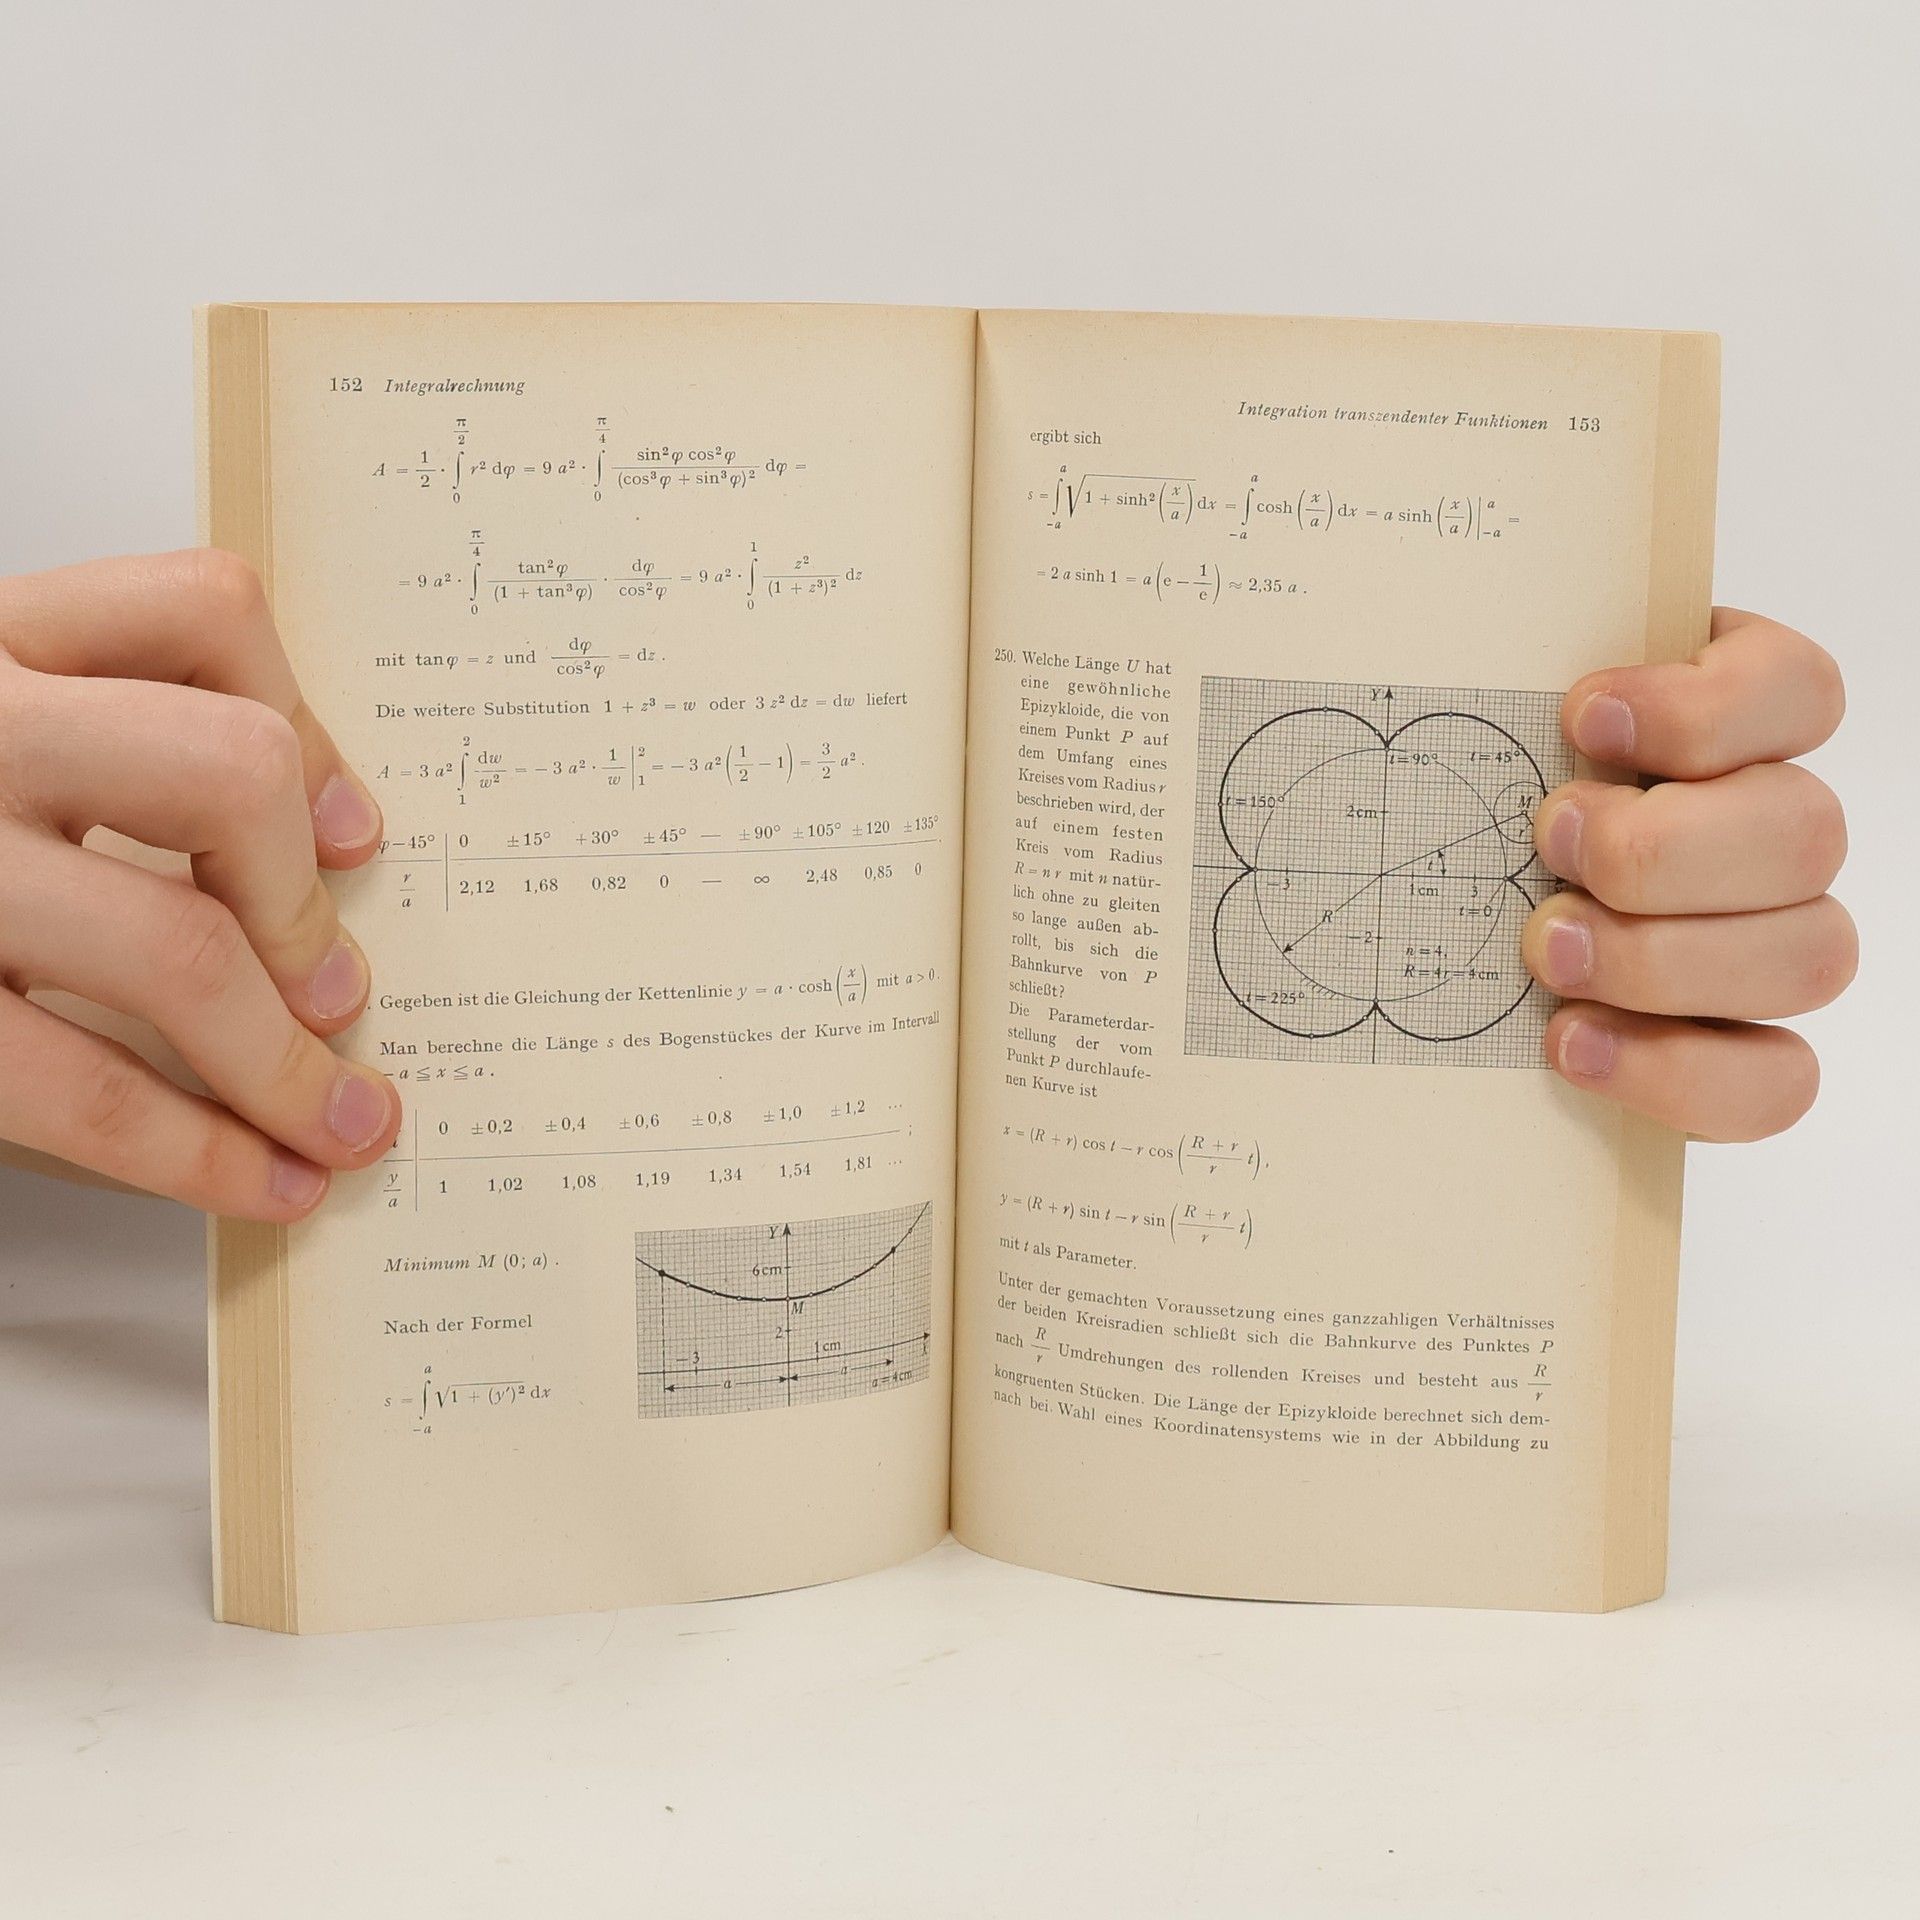 152 Integralrechnung
A = 1/2 · ∫₀^(π/2) r² dφ = 9 a² · ∫₀^(π/4) sin²φ cos²φ / (cos³φ + sin³φ)² dφ =
= 9 a² · ∫₀^(π/4) tan²φ / (1 + tan³φ) · dφ / cos²φ = 9 a² · ∫₀^1 z² / (1 + z³)² dz
mit tanφ = z und dφ / cos²φ = dz .
Die weitere Substitution 1 + z³ = w oder 3 z² dz = dw liefert
A = 3 a² ∫₁^2 dw / w² = − 3 a² · 1/w |₁^2 = − 3 a² (1/2 − 1) = 3/2 a² .
φ−45° 0 ±15° +30° ±45° — ±90° ±105° ±120 ±135°
r/a 2,12 1,68 0,82 0 — ∞ 2,48 0,85 0
. Gegeben ist die Gleichung der Kettenlinie y = a · cosh (x/a) mit a > 0.
Man berechne die Länge s des Bogenstückes der Kurve im Intervall
− a ≦ x ≦ a .
0 ±0,2 ±0,4 ±0,6 ±0,8 ±1,0 ±1,2 ... ;
y/a 1 1,02 1,08 1,19 1,34 1,54 1,81 ...
Minimum M (0; a) .
Nach der Formel
s = ∫₋ₐ^a √(1 + (y′)²) dx
Y
6cm
M
2
1cm
−3
X
a
a
a=4cm
Integration transzendenter Funktionen 153
ergibt sich
s = ∫₋ₐ^a √(1 + sinh² (x/a)) dx = ∫₋ₐ^a cosh (x/a) dx = a sinh (x/a) |₋ₐ^a =
= 2 a sinh 1 = a (e − 1/e) ≈ 2,35 a .
250. Welche Länge U hat
eine gewöhnliche
Epizykloide, die von
einem Punkt P auf
dem Umfang eines
Kreises vom Radius r
beschrieben wird, der
auf einem festen
Kreis vom Radius
R = n r mit n natür-
lich ohne zu gleiten
so lange außen ab-
rollt, bis sich die
Bahnkurve von P
schließt?
Die Parameterdar-
stellung der vom
Punkt P durchlaufe-
nen Kurve ist
Y
t=90°
t=45°
t=150°
M
2cm
r
t
−3
1cm
3
t=0
R
−2
n=4,
R=4r=4cm
t=225°
x = (R + r) cos t − r cos ((R + r)/r t),
y = (R + r) sin t − r sin ((R + r)/r t)
mit t als Parameter.
Unter der gemachten Voraussetzung eines ganzzahligen Verhältnisses
der beiden Kreisradien schließt sich die Bahnkurve des Punktes P
nach R/r Umdrehungen des rollenden Kreises und besteht aus R/r
kongruenten Stücken. Die Länge der Epizykloide berechnet sich dem-
nach bei Wahl eines Koordinatensystems wie in der Abbildung zu